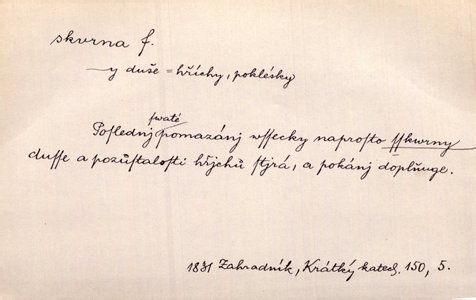 skvrna f.
—y duše = hříchy, poklésky
swaté
Poslednj pomazánj wssecky naprosto sskwrny
dusse a pozůstalosti hřjchů stjrá, a pokánj doplňuge.
1831 Zahradník, Krátký katech. 150, 5.